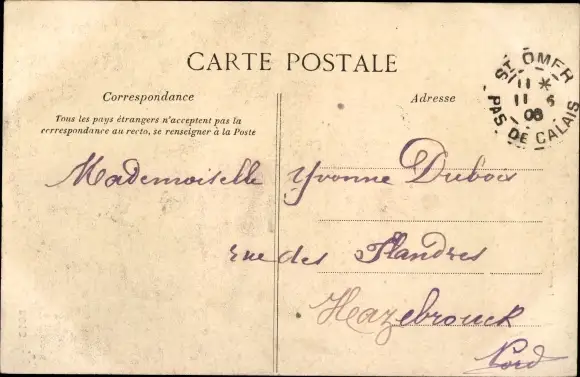 CARTE POSTALE
Correspondance
Adresse
Tous les pays étrangers n'acceptent pas la
correspondance au recto, se renseigner à la Poste
ST OMER
11 *
11 6
06
PAS DE CALAIS
Mademoiselle Yvonne Dubois
rue des Flandres
Hazebrouck
Nord